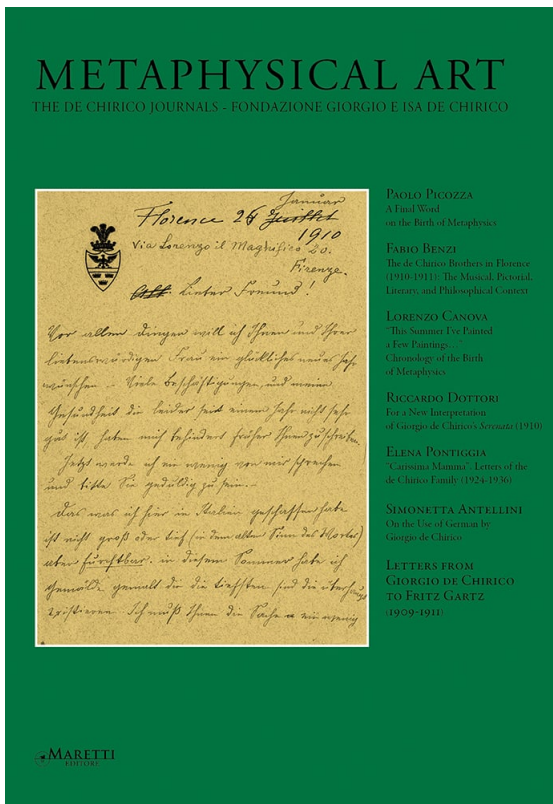 METAPHYSICAL ART
THE DE CHIRICO JOURNALS - FONDAZIONE GIORGIO E ISA DE CHIRICO
Januar
Florence 26 Juillet
1910
Via Lorenzo il Magnifico 20.
Firenze.
Lieber Freund!
Vor allen Dingen will ich Ihnen und Ihrer
liebenswürdigen Frau ein glückliches neues Jahr
wünschen. Viele Beschäftigungen und meine
Gesundheit die leider seit einem Jahr nicht sehr
gut ist, haben mich behindert früher Ihnen zu schreiben.
Jetzt werde ich ein wenig von mir sprechen
und bitte Sie geduldig zu sein.
Das was ich hier in Italien geschaffen habe
ist nicht groß oder tief (in dem alten Sinn des Wortes)
aber furchtbar. in diesem Sommer habe ich
Gemälde gemalt die die tiefsten sind die überhaupt
existieren. Ich muß Ihnen die Sache ein wenig
PAOLO PICOZZA
A Final Word
on the Birth of Metaphysics
FABIO BENZI
The de Chirico Brothers in Florence
(1910-1911): The Musical, Pictorial,
Literary, and Philosophical Context
LORENZO CANOVA
"This Summer I've Painted
a Few Paintings…"
Chronology of the Birth
of Metaphysics
RICCARDO DOTTORI
For a New Interpretation
of Giorgio de Chirico's Serenata (1910)
ELENA PONTIGGIA
"Carissima Mamina". Letters of the
de Chirico Family (1924-1936)
SIMONETTA ANTELLINI
On the Use of German by
Giorgio de Chirico
LETTERS FROM
GIORGIO DE CHIRICO
TO FRITZ GARTZ
(1909-1911)
MARETTI
EDITORE